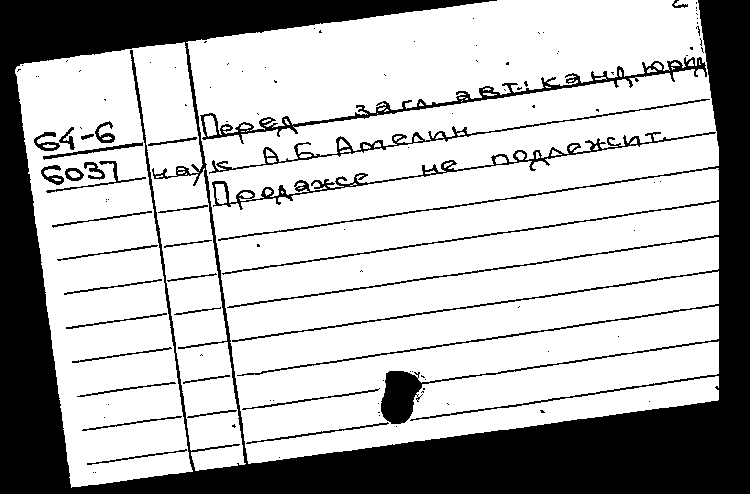 64-6 Перед загл. авт.: канд. юрид.
6037 наук А.Б. Амелин.
Продаже не подлежит.